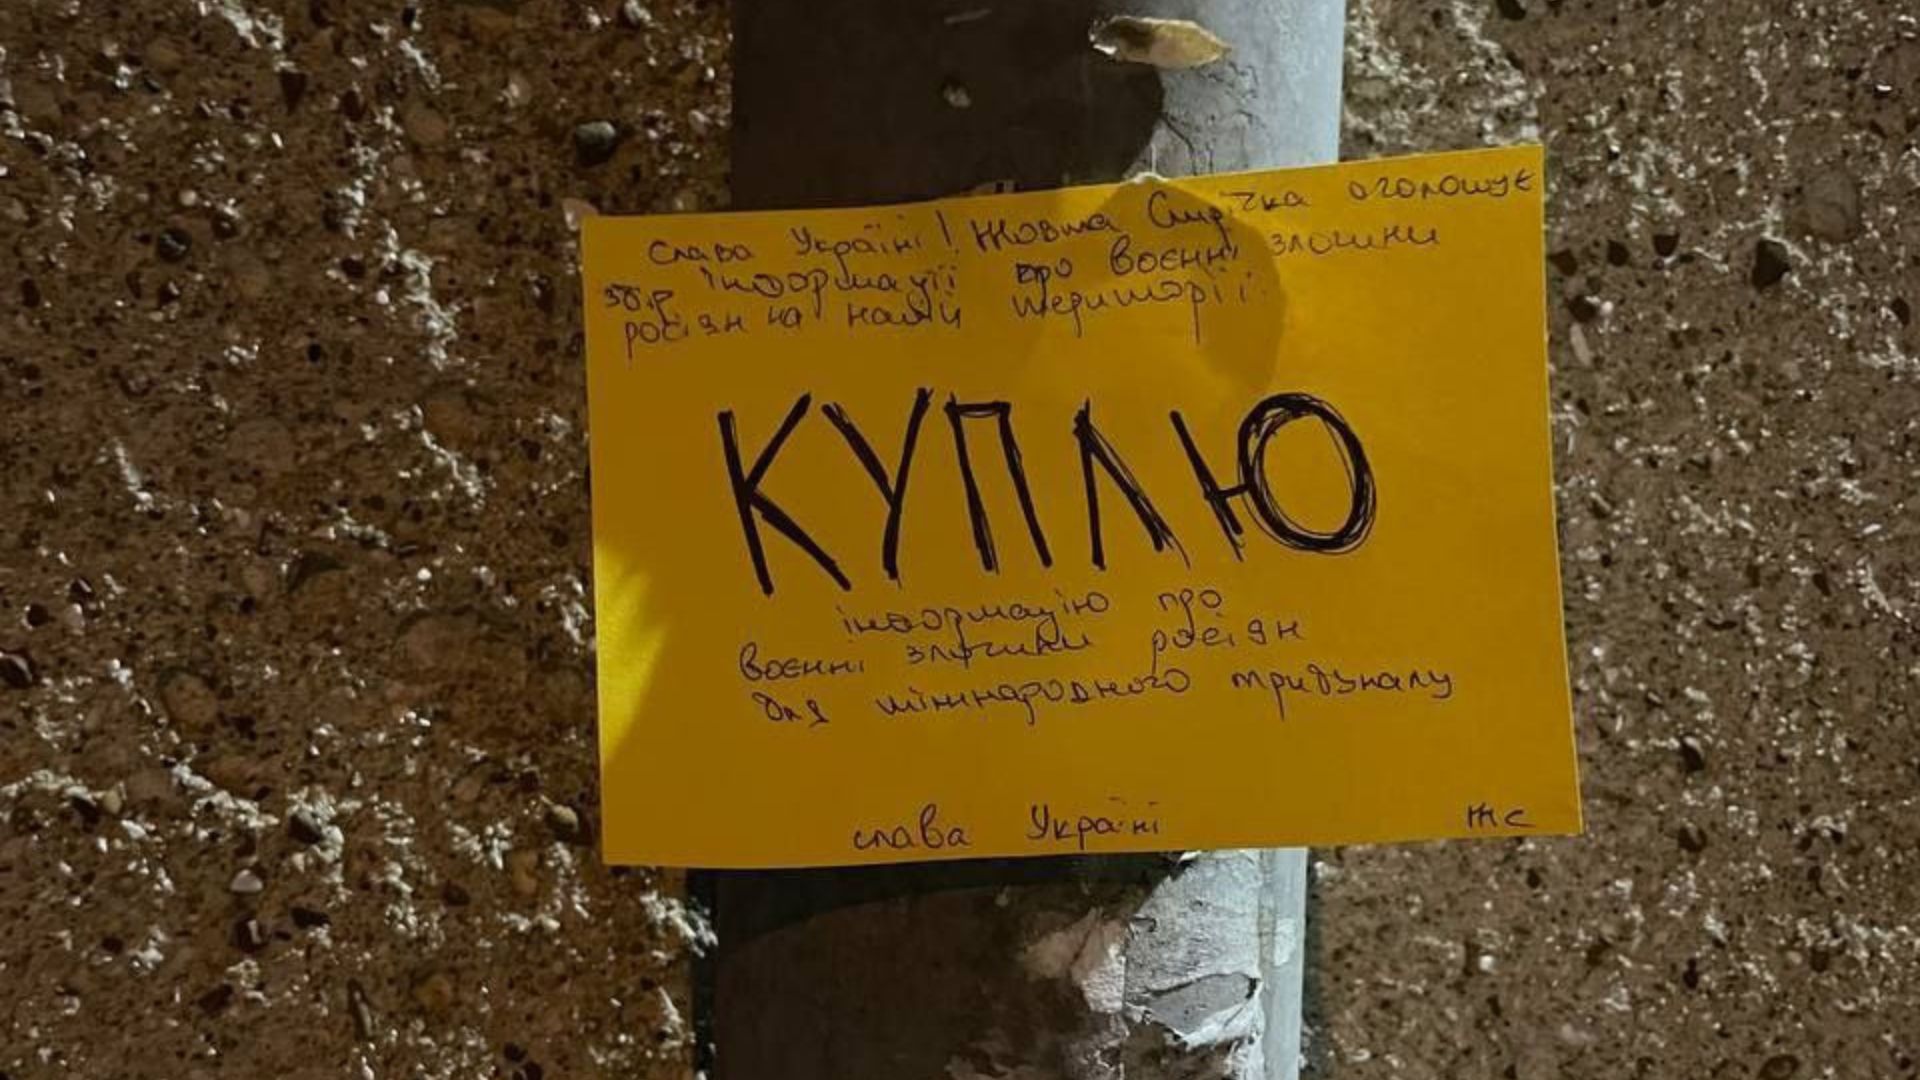 Слава Україні! Жовта Стрічка оголошує
збір інформації про воєнні злочини
росіян на нашій території.
КУПЛЮ
інформацію про
воєнні злочини росіян
для міжнародного трибуналу
слава Україні
жс